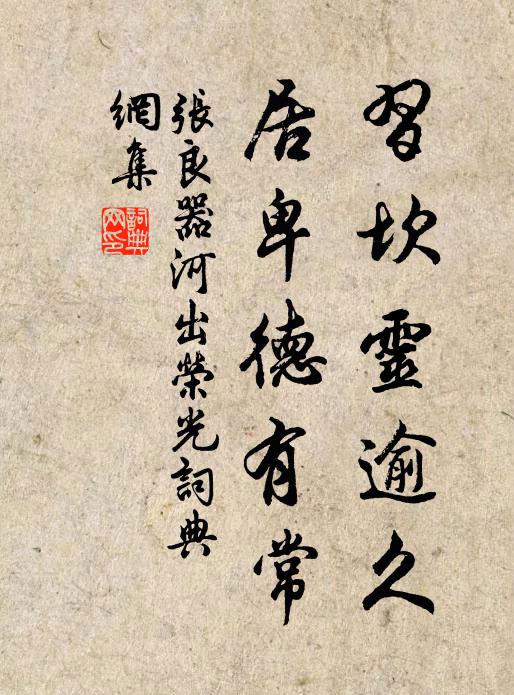 習坎靈逾久
居卑德有常
張良器河出榮光詞典
網集
詞典
网印